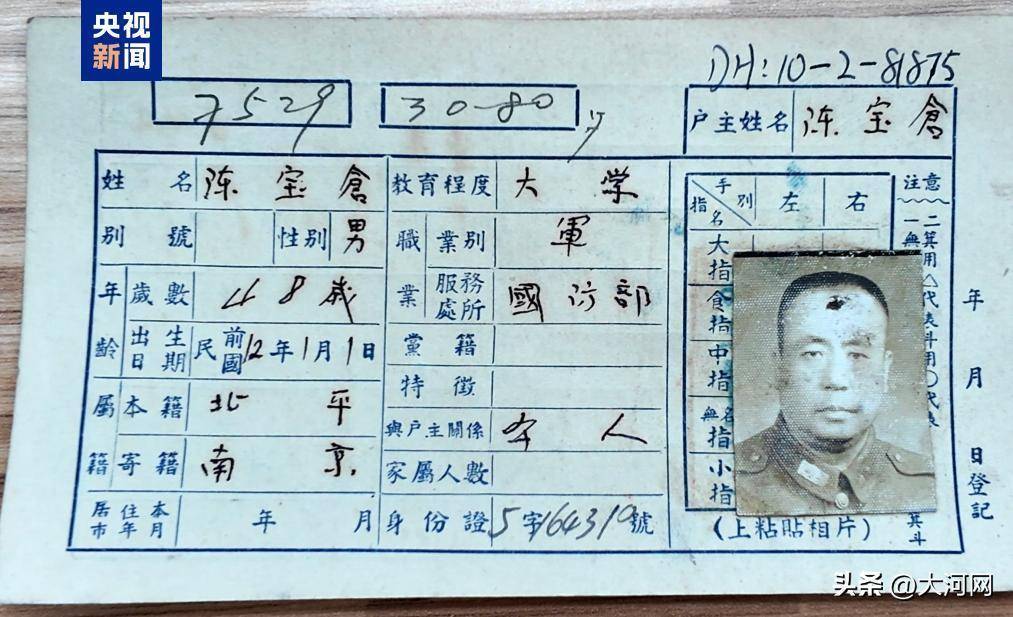 央视
新闻
DH:10-2-81875
7529
30-80
户主姓名 陈宝倉
姓名 陈宝倉 教育程度 大学
別號 性別 男 職業 業別 軍
年龄 歲數 48歲 服務處所 國防部
出生日期 民國前12年1月1日 黨籍
特徵
屬籍 本籍 北平 與戶主關係 本人
寄籍 南京 家屬人數
居住本市年月 年 月 身份證 5字164319號
手別 指名 左 右
大指
食指
中指
無名指
小指
注意
一無
二箕用△代表斗用○代表
箕斗
(上粘貼相片)
年 月 日登記
头条 @大河网